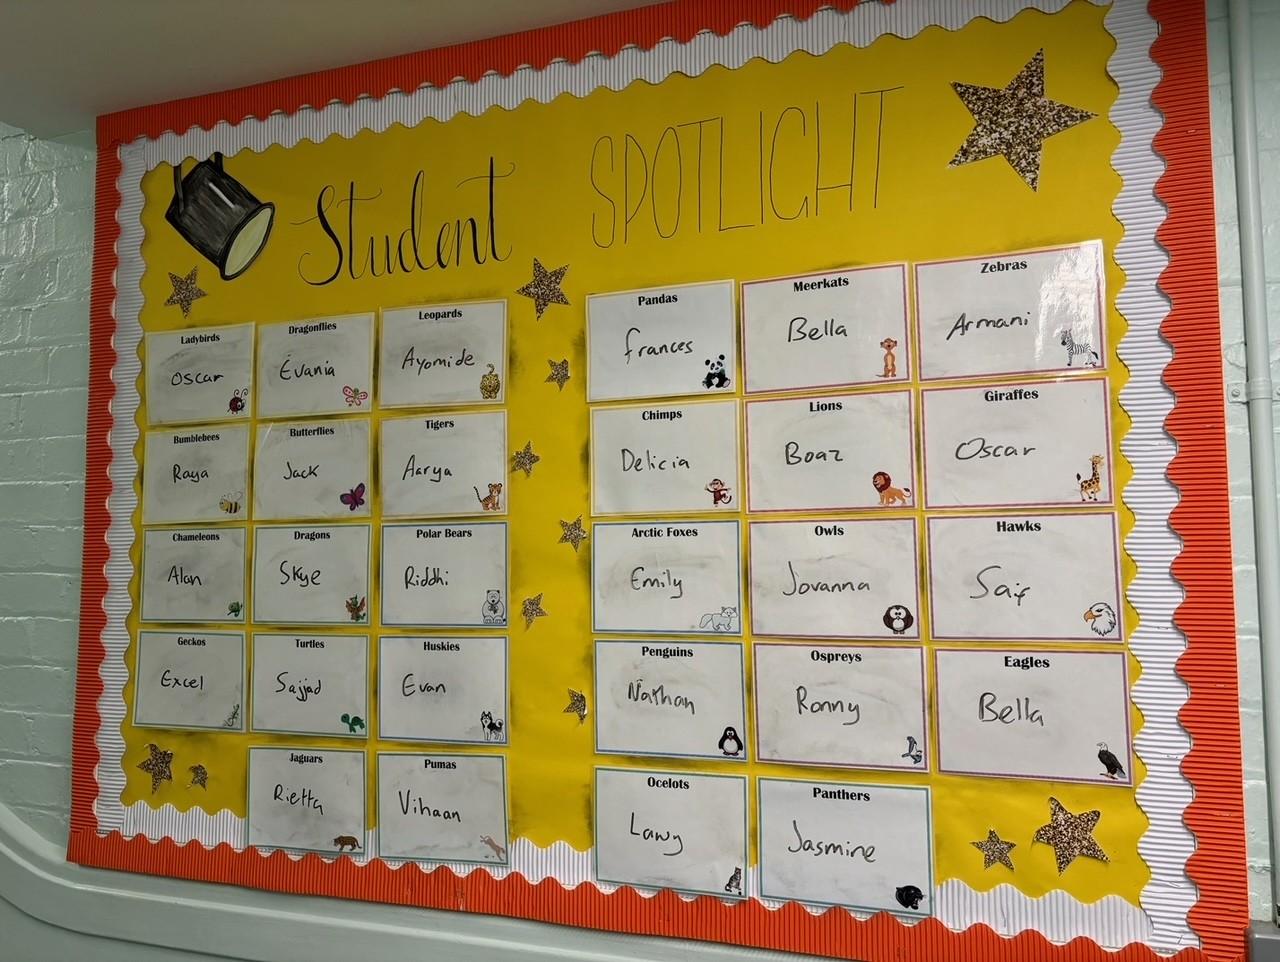 Student SPOTLIGHT
Ladybirds
Oscar
Dragonflies
Evania
Leopards
Ayomide
Bumblebees
Raya
Butterflies
Jack
Tigers
Aarya
Chameleons
Alan
Dragons
Skye
Polar Bears
Riddhi
Geckos
Excel
Turtles
Sajjad
Huskies
Evan
Jaguars
Rietta
Pumas
Vihaan
Pandas
frances
Meerkats
Bella
Zebras
Armani
Chimps
Delicia
Lions
Boaz
Giraffes
Oscar
Arctic Foxes
Emily
Owls
Jovanna
Hawks
Saif
Penguins
Nathan
Ospreys
Ronny
Eagles
Bella
Ocelots
Panthers
Jasmine